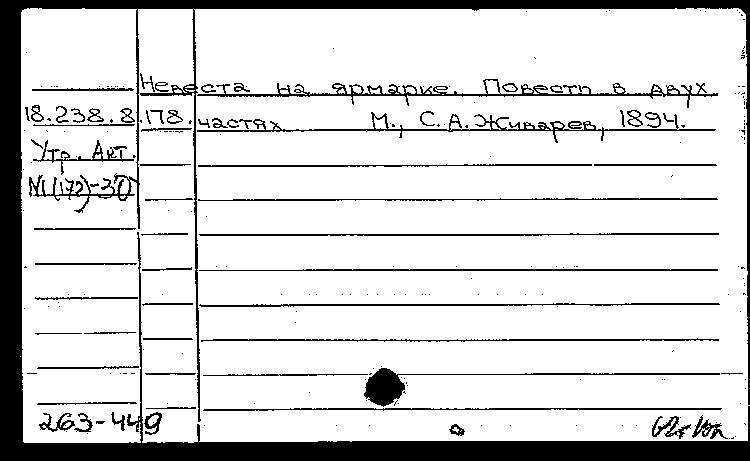 Невеста на ярмарке. Повесть в двух
18.238.8.178. частях М., С.А.Живарев, 1894.
Утр. Акт.
N1(172)-30
263-449